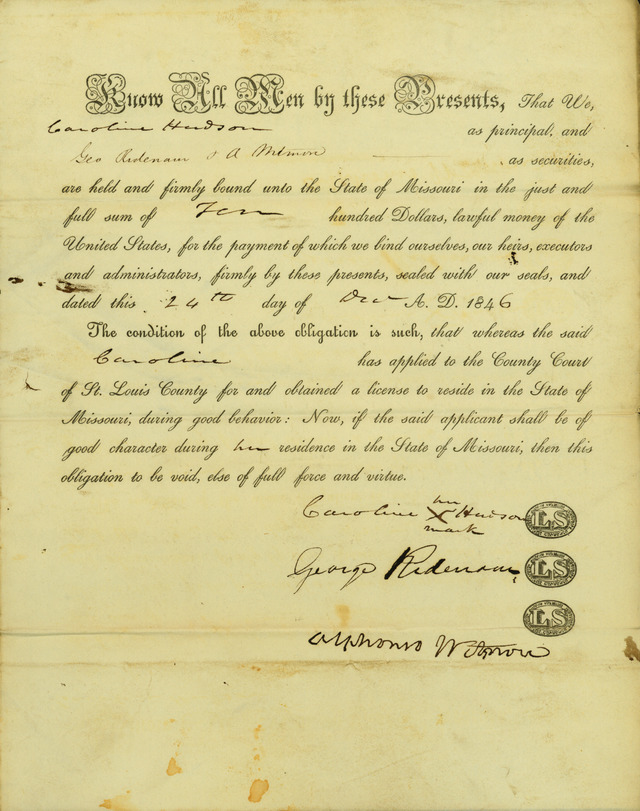 Know All Men by these Presents, That We,
Caroline Hudson as principal, and
Geo Ridenaur & A Wetmore as securities,
are held and firmly bound unto the State of Missouri in the just and
full sum of Ten hundred Dollars, lawful money of the
United States, for the payment of which we bind ourselves, our heirs, executors
and administrators, firmly by these presents, sealed with our seals, and
dated this 24th day of Dec A. D. 1846
The condition of the above obligation is such, that whereas the said
Caroline has applied to the County Court
of St. Louis County for and obtained a license to reside in the State of
Missouri, during good behavior: Now, if the said applicant shall be of
good character during her residence in the State of Missouri, then this
obligation to be void, else of full force and virtue.
her
Caroline X Hudson LS
mark
George Ridenaur LS
LS
Alphonso Wetmore